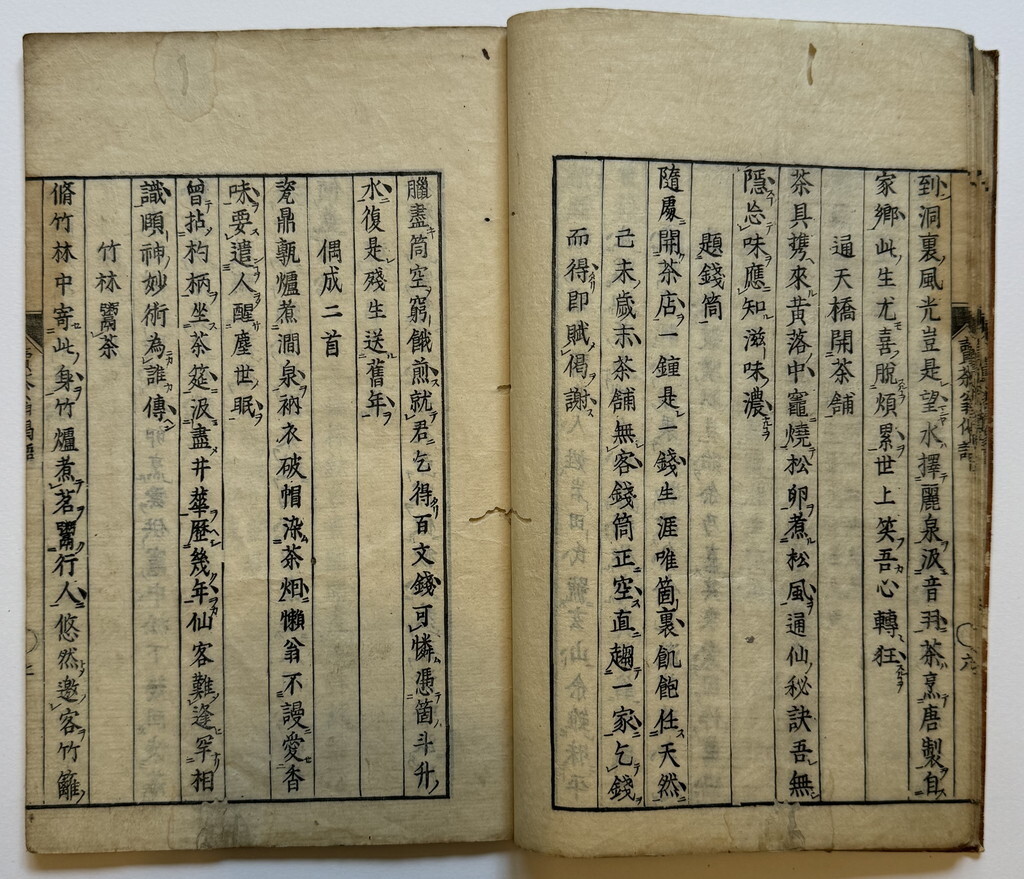 到洞裏風光豈是望水擇麗泉汲音羽茶烹唐製自
家鄉此生尤喜脫煩累世上笑吾心轉狂
通天橋開茶舖
茶具携來黃落中竈燒松卵煮松風通仙秘訣吾無
隱恁味應知滋味濃
題錢筒
隨處開茶店一鐘是一錢生涯唯箇裏飢飽任天然
己未歲末茶舖無客錢筒正空直趨一家乞錢
而得即賦偈謝
臘盡筒空窮餓煎就君乞得百文錢可憐憑箇斗升
水復是殘生送舊年
偶成二首
瓷鼎瓢爐煮澗泉衲衣破帽染茶烟懶翁不謾愛香
味要遣人醒塵世眠
曾拈杓柄坐茶筵汲盡井華歷幾年仙客難逢罕相
識頤神妙術為誰傳
竹林鬻茶
脩竹林中寄此身竹爐煮茗鬻行人悠然邀客竹籬